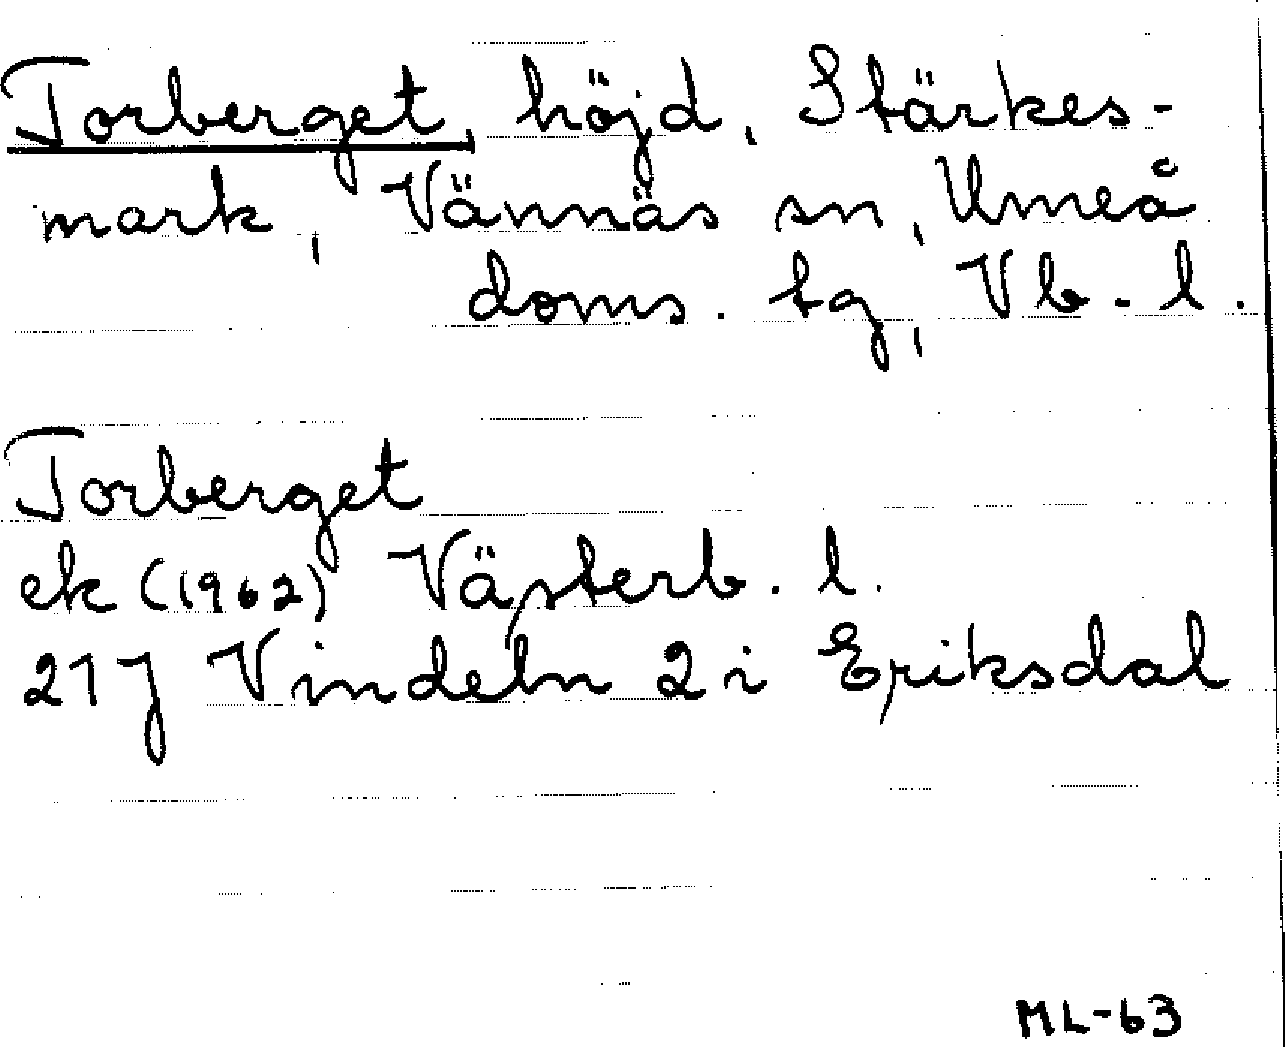 Torberget, höjd, Stärkes-
mark, Vännäs sn, Umeå
doms. tg, Vb. l.
Torberget
ek (1962) Västerb. l.
21J Vindeln 2 i Eriksdal
ML-63